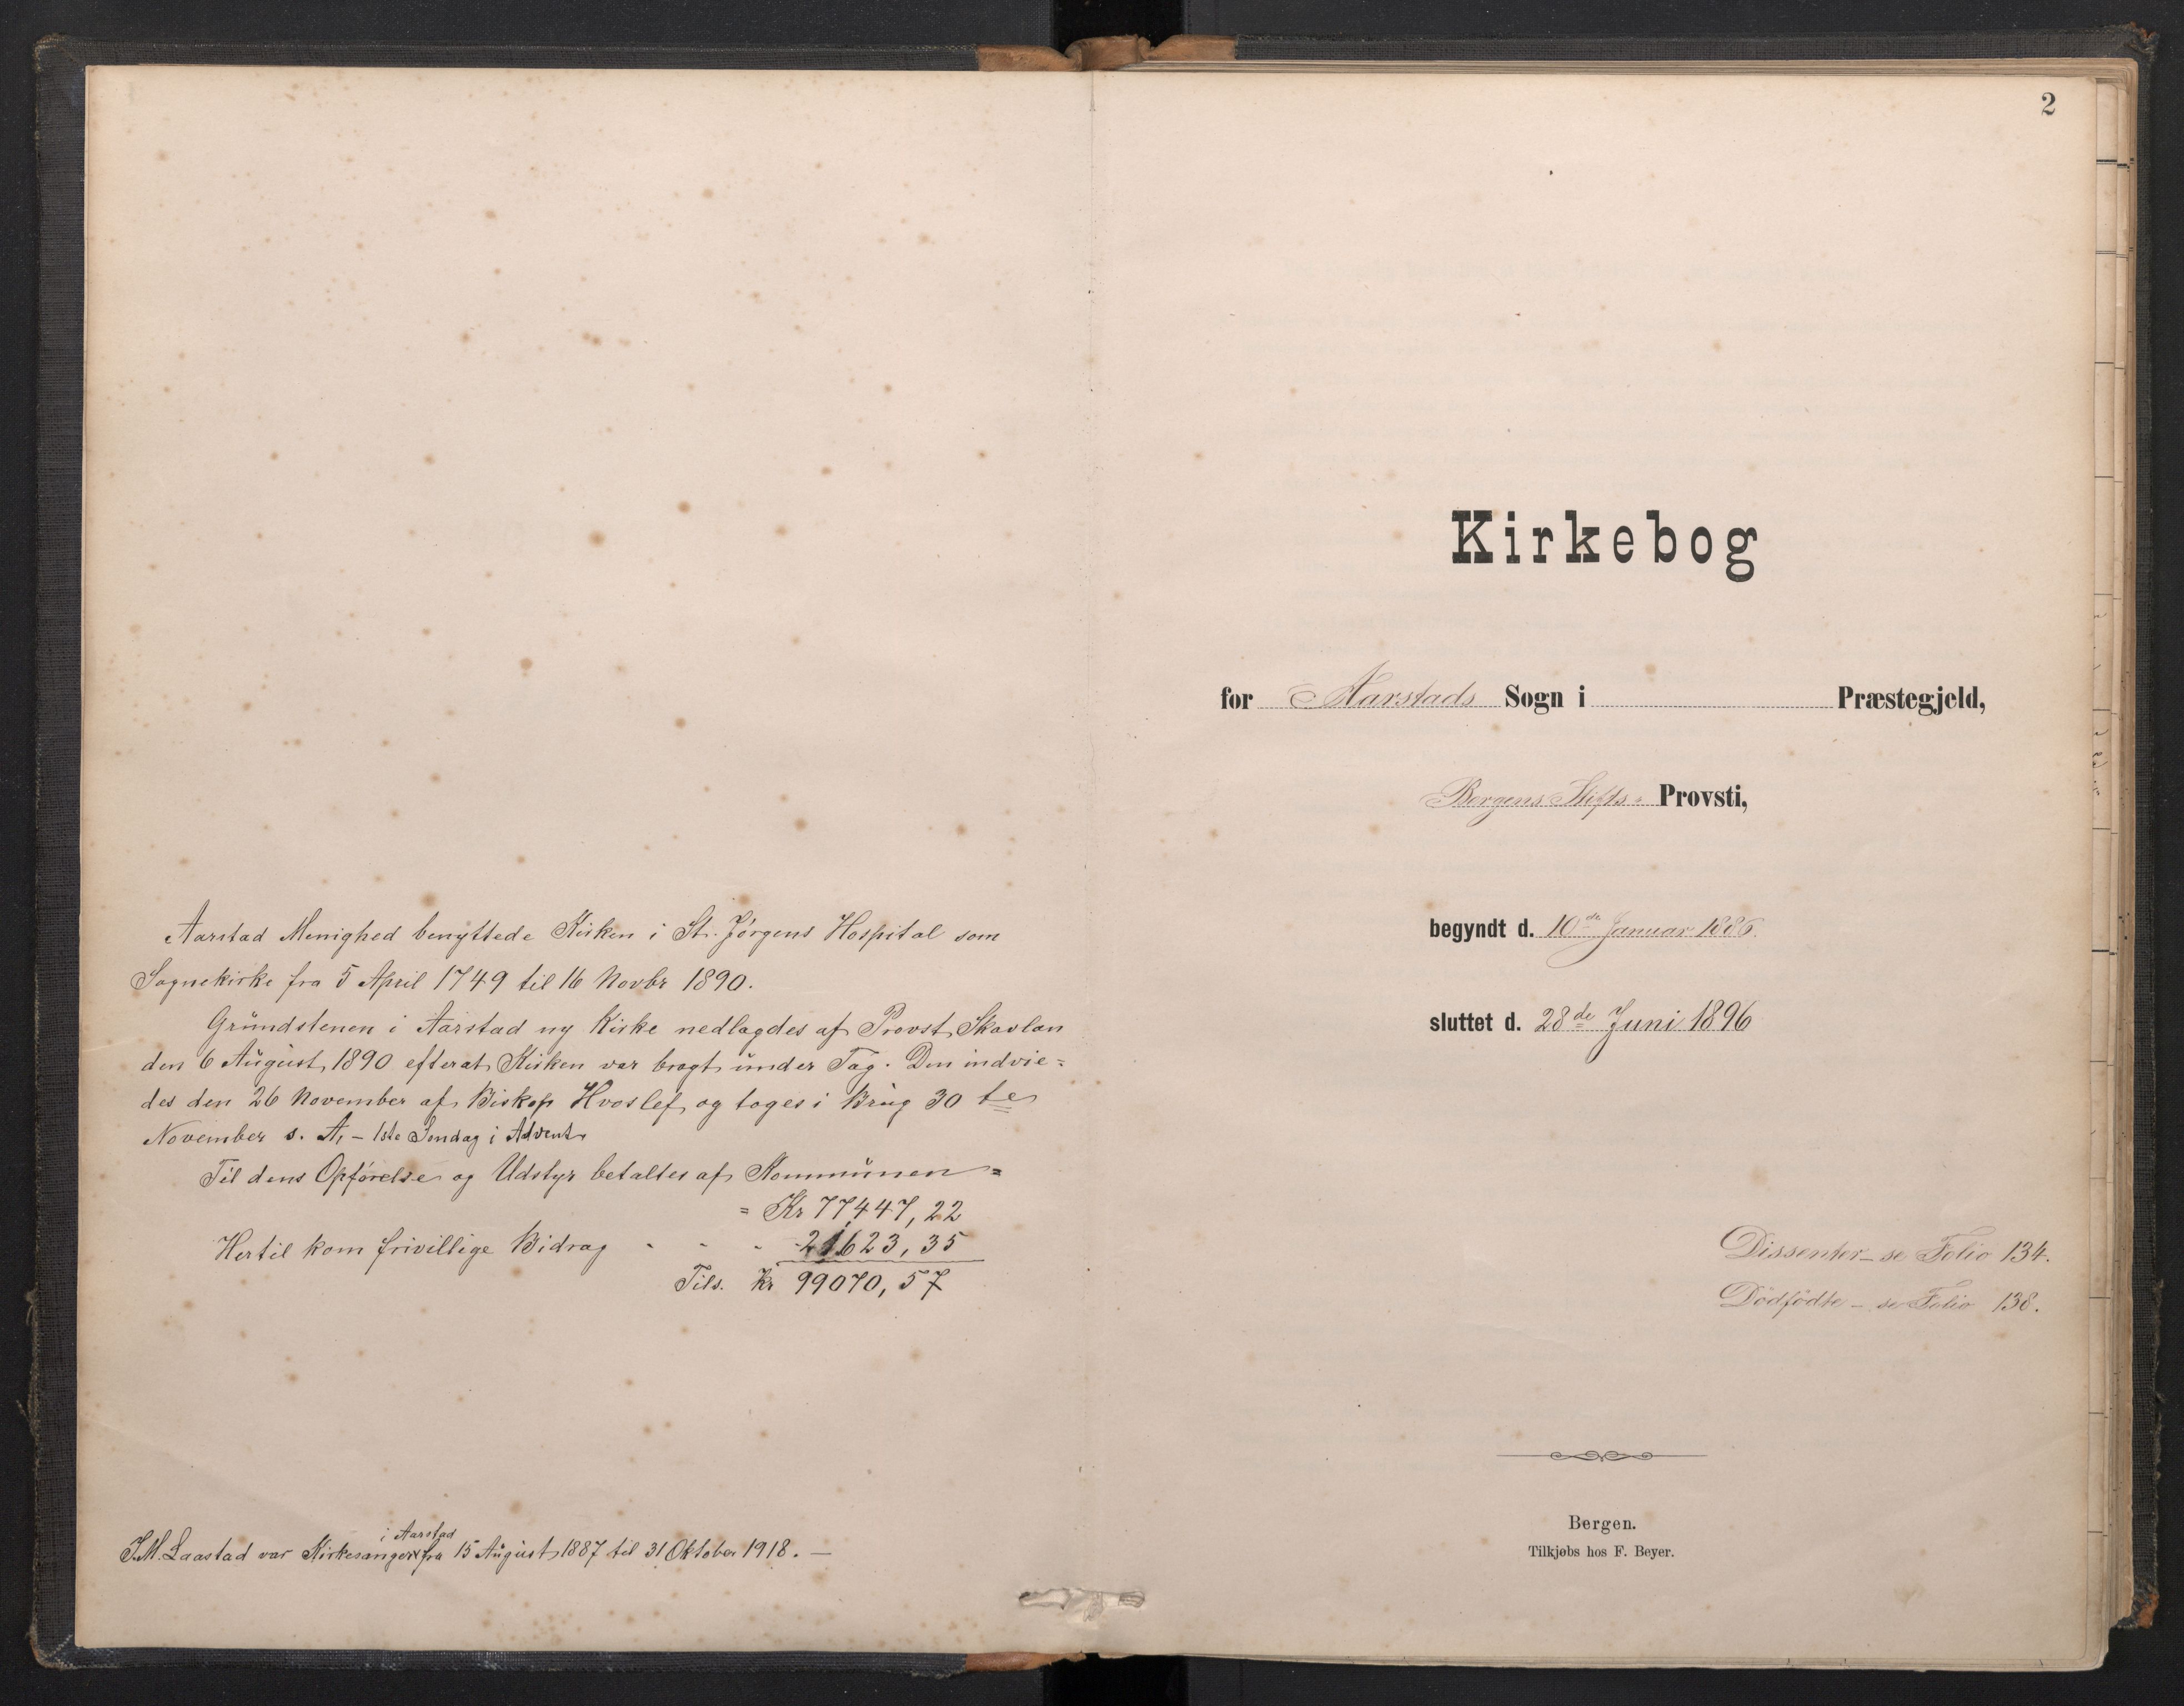 Aarstad Menighed benyttede Kirken i St. Jørgens Hospital som
Sognekirke fra 5 April 1749 til 16 Novbr 1890.
Grundstenen i Aarstad ny Kirke nedlagdes af Provst Skavlan
den 6 August 1890 efterat Kirken var bragt under Tag. Den indvie=
des den 26 November af Biskop Hvoslef og toges i Brug 30 te
November s. A. – 1ste Søndag i Advent.
Til dens Opførelse og Udstyr betaltes af Kommunen =
= Kr 77447,22
Hertil kom frivillige Bidrag - - - 21623,35
Tils. Kr 99070,57
i Aarstad
J.M. Laastad var Kirkesanger fra 15 August 1887 til 31 Oktober 1918. –
2
Kirkebog
for Aarstads Sogn i Præstegjeld,
Bergens Stifts- Provsti,
begyndt d. 10de Januar 1886.
sluttet d. 28de Juni 1896
Dissenter – se Folio 134.
Dödfödte – se Folio 138.
Bergen.
Tilkjøbs hos F. Beyer.